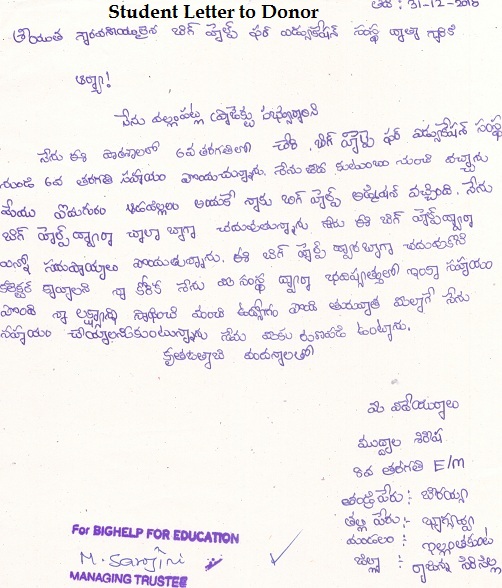 Student Letter to Donor
తేది : 31-12-2018
గౌరవనీయులైన బిగ్ హెల్ప్ ఫర్ ఎడ్యుకేషన్ సంస్థ
ఆర్యా!
నేను
నేను ఈ పాఠశాలలో 6వ తరగతిలో చేరి, బిగ్ హెల్ప్ ఫర్ ఎడ్యుకేషన్ సంస్థ
నుండి 6వ తరగతి సహాయం పొందుచున్నాను. నేను పేద కుటుంబం నుంచి వచ్చాను
మేము ఆడపిల్లలం అయితే నాకు బిగ్ హెల్ప్ వచ్చింది. నేను
బిగ్ హెల్ప్ ద్వారా చాలా బాగా చదువుతున్నాను. నేను ఈ బిగ్ హెల్ప్ ద్వారా
ఎన్నో సదుపాయాలు పొందుతున్నాను. ఈ బిగ్ హెల్ప్ ద్వారా బాగా చదువుకొని
కలెక్టర్ కావాలని నా కోరిక నేను ఈ సంస్థ ద్వారా భవిష్యత్తులో ఇంకా సహాయం
పొంది నా లక్ష్యాన్ని సాధించి మంచి ఉద్యోగం పొంది తరువాత నేను
సహాయం చేయాలనుకుంటున్నాను నేను మీకు రుణపడి ఉంటాను.
కృతజ్ఞతాభి వందనాలతో
మీ విధేయురాలు
ముద్దాల శిరీష
8వ తరగతి E/M
తండ్రి పేరు :-
తల్లి పేరు :-
మండలం : ఇల్లంతకుంట
జిల్లా : రాజన్న సిరిసిల్ల
For BIGHELP FOR EDUCATION
M. Sarojini
MANAGING TRUSTEE